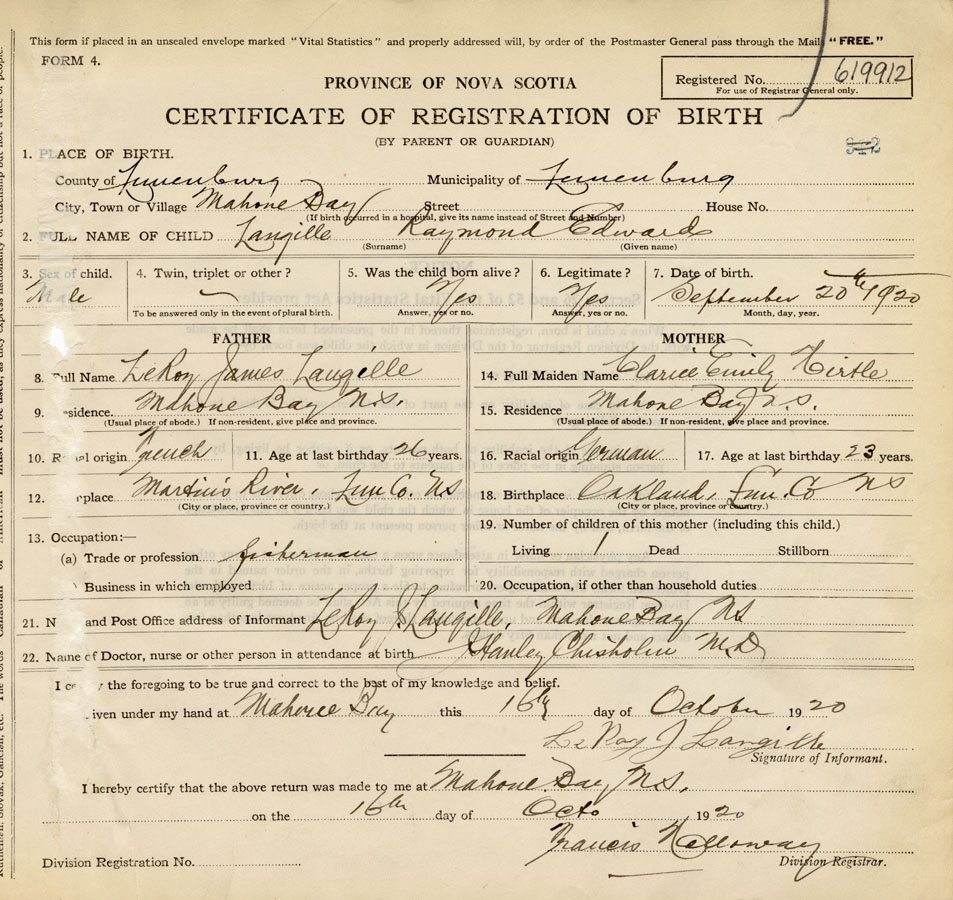 This form if placed in an unsealed envelope marked "Vital Statistics" and properly addressed will, by order of the Postmaster General pass through the Mail "FREE."
FORM 4.
Registered No. 619912
For use of Registrar General only.
PROVINCE OF NOVA SCOTIA
CERTIFICATE OF REGISTRATION OF BIRTH
(BY PARENT OR GUARDIAN)
1. PLACE OF BIRTH.
County of Lunenburg Municipality of Lunenburg
City, Town or Village Mahone Bay Street House No.
(If birth occurred in a hospital, give its name instead of Street and Number)
2. FULL NAME OF CHILD Langille Raymond Edward
(Surname) (Given name)
3. Sex of child. 4. Twin, triplet or other? 5. Was the child born alive? 6. Legitimate? 7. Date of birth.
Male — Yes Yes September 20th 1920
To be answered only in the event of plural birth. Answer, yes or no. Answer, yes or no. Month, day, year.
FATHER MOTHER
8. Full Name LeRoy James Langille 14. Full Maiden Name Clarice Emily Hirtle
9. esidence. Mahone Bay N.S. 15. Residence Mahone Bay N.S.
(Usual place of abode.) If non-resident, give place and province. (Usual place of abode.) If non-resident, give place and province.
10. R al origin French 11. Age at last birthday 26 years. 16. Racial origin German 17. Age at last birthday 23 years.
12. place Martin's River, Lun Co. NS 18. Birthplace Oakland, Lun. Co NS
(City or place, province or country.) (City or place, province or country.)
13. Occupation:— 19. Number of children of this mother (including this child.)
(a) Trade or profession fisherman Living 1 Dead Stillborn
) Business in which employed 20. Occupation, if other than household duties
21. N and Post Office address of Informant LeRoy J. Langille, Mahone Bay NS
22. Name of Doctor, nurse or other person in attendance at birth Stanley Chisholm M.D
I ce y the foregoing to be true and correct to the best of my knowledge and belief.
iven under my hand at Mahone Bay this 16th day of October 1920
LeRoy J Langille
Signature of Informant.
I hereby certify that the above return was made to me at Mahone Bay N.S.
on the 16th day of Octo 1920
Francis Holloway
Division Registration No. Division Registrar.